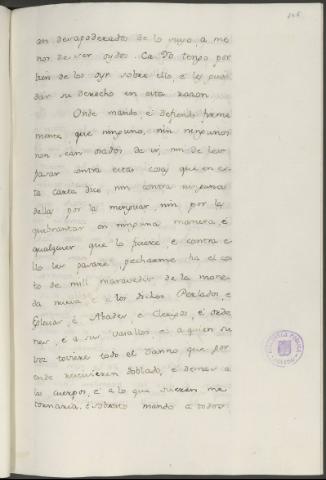 on desapoderados de lo suyo, a me
nos de ser oydos. Ca Yo tengo por
bien de los oyr sobre ello, e les guar
dar su derecho en esta razon.
Onde mando, e defiendo firme
mente, que ninguno, nin ningunos
non sean osados de ir, nin de les
pasar contra estas cosas que en es
ta carta dice, nin contra ninguna
dellas por la menguar, nin por la
quebrantar en ninguna manera, e
qualquier que lo ficiere, e contra e
llo les pasare, pecharme ha el co
to de mill maravedis de la mone
da nueva, e a los dichos Perlados, e
Eglesias, e Abades, e Clerigos, e orde
nes, e a sus vasallos, e a quien su
voz toviere todo el danno que por
ende recivieren doblado, e demas a
los cuerpos, e a lo que
tornaria. E sobresto mando a todos